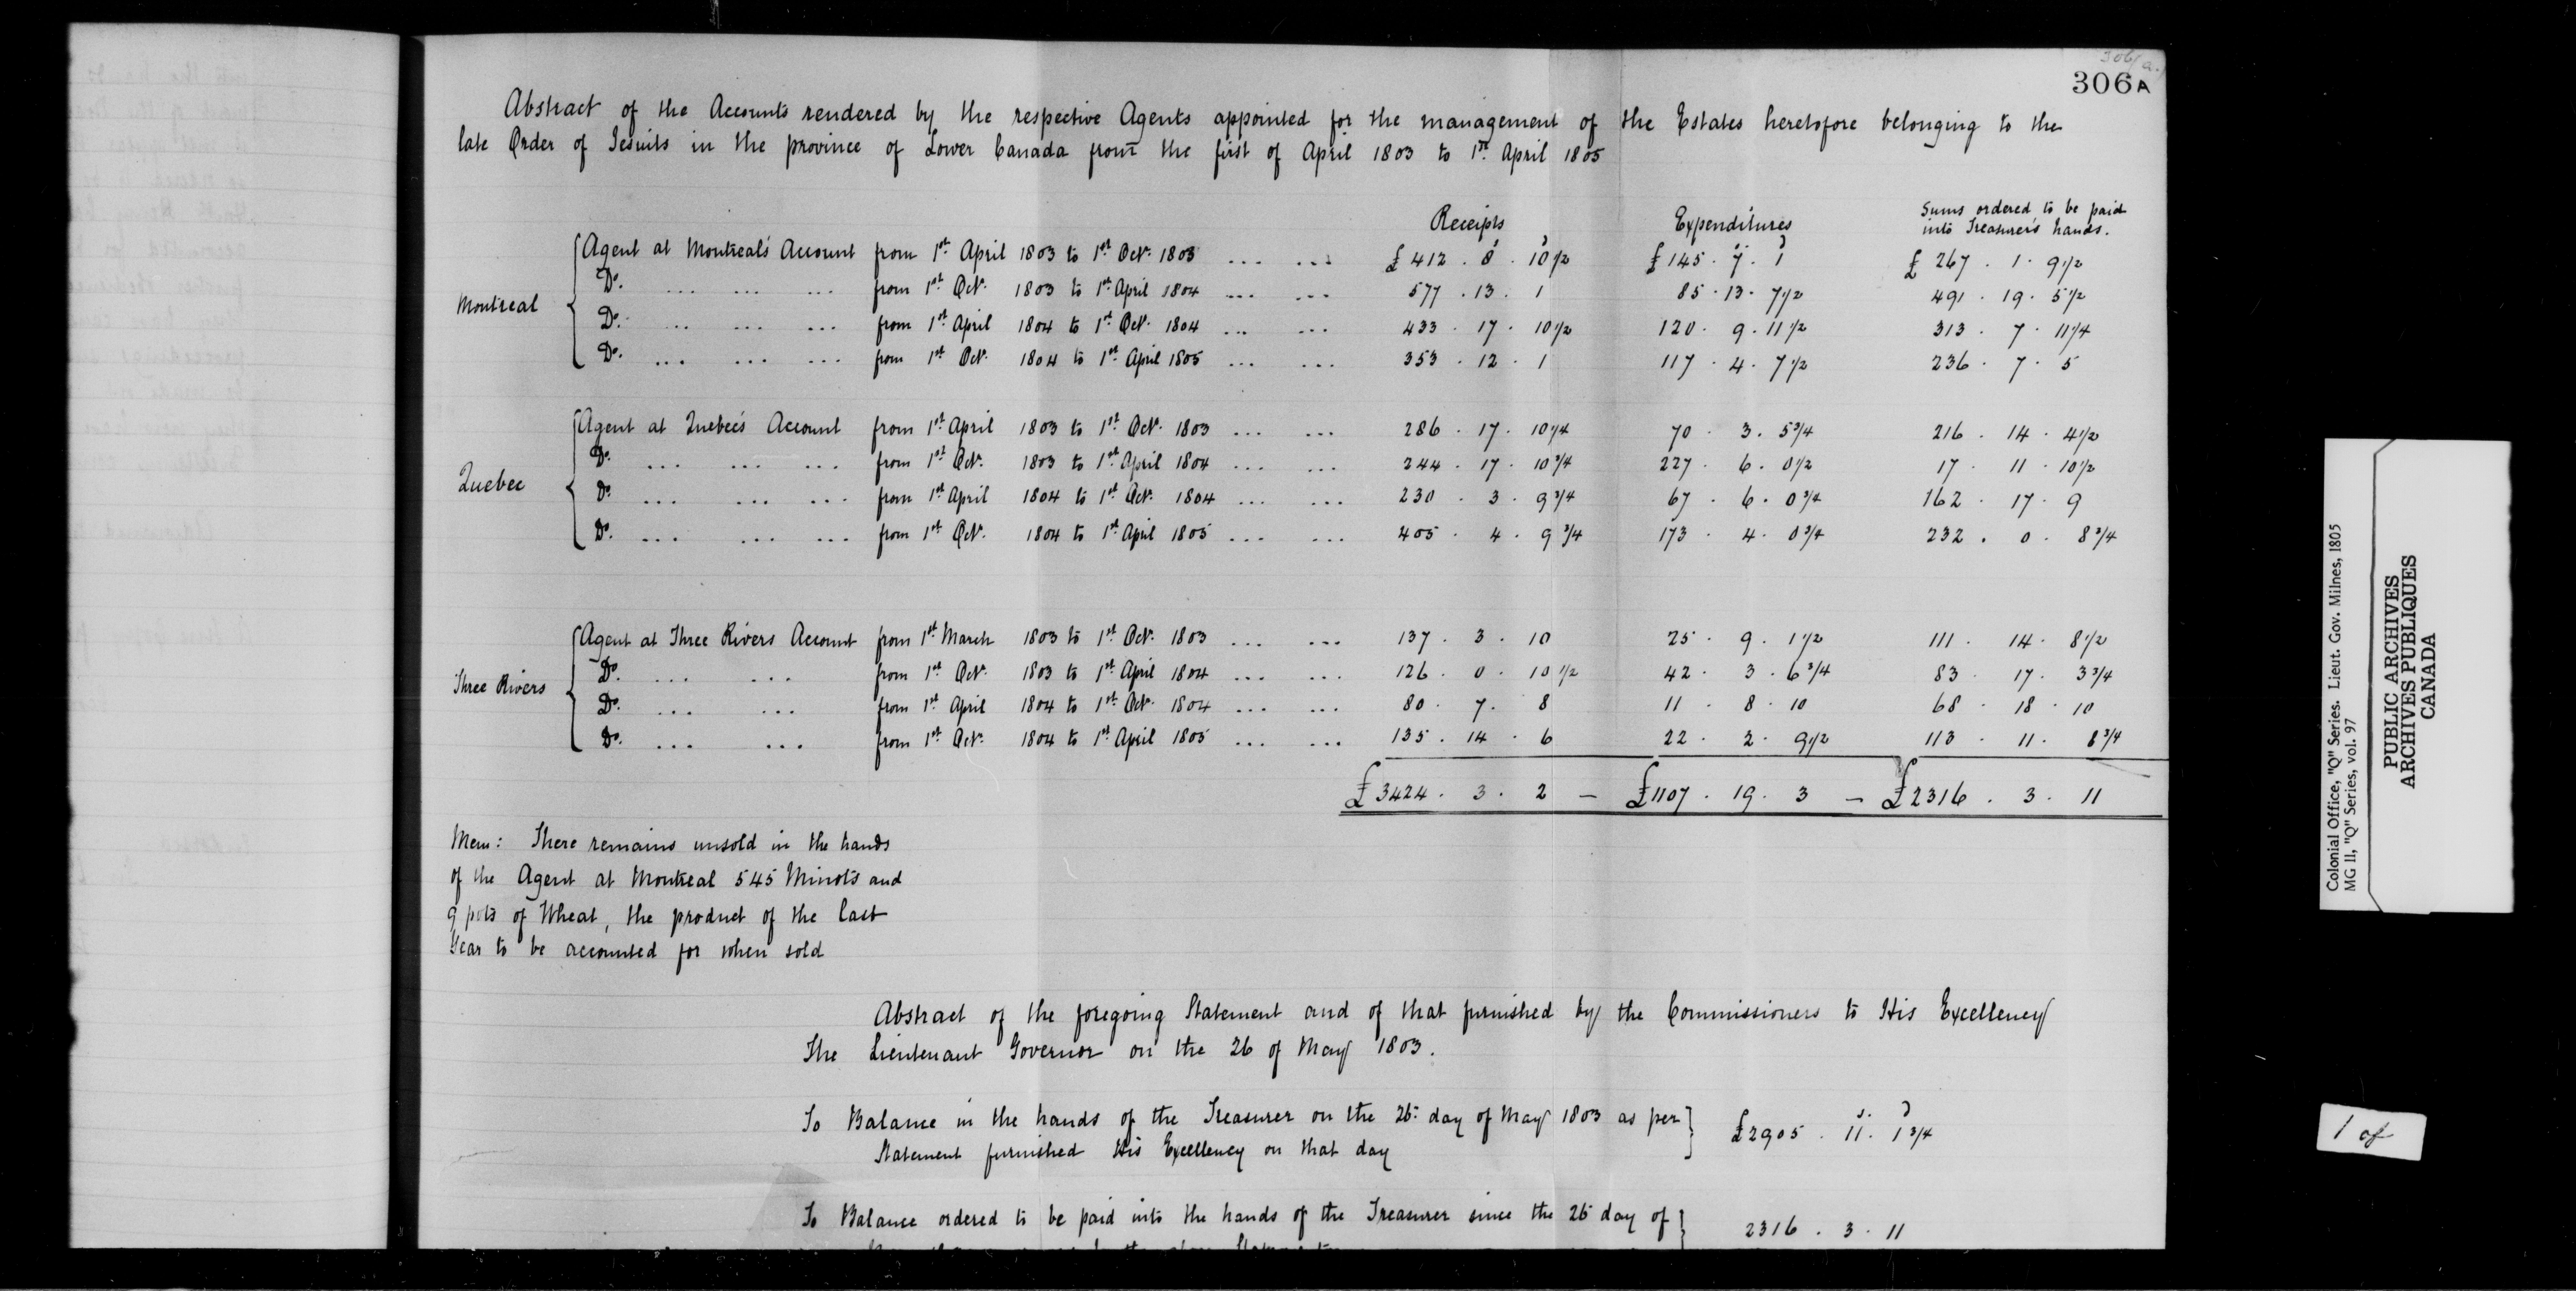 306/a.
306A
Abstract of the Accounts rendered by the respective Agents appointed for the management of the Estates heretofore belonging to the
late Order of Jesuits in the province of Lower Canada from the first of April 1803 to 1st April 1805
Receipts Expenditures Sums ordered to be paid
into Treasurer's hands.
Montreal
Agent at Montreal's Account from 1st April 1803 to 1st Oct. 1803 ... ... £ 412 . 8 . 10 1/2 £ 145 . 7 . 1 £ 267 . 1 . 9 1/2
Do. ... ... ... from 1st Oct. 1803 to 1st April 1804 ... ... 577 . 13 . 1 85 . 13 . 7 1/2 491 . 19 . 5 1/2
Do. ... ... ... from 1st April 1804 to 1st Oct. 1804 ... ... 433 . 17 . 10 1/2 120 . 9 . 11 1/2 313 . 7 . 11 1/4
Do. ... ... ... from 1st Oct. 1804 to 1st April 1805 ... ... 353 . 12 . 1 117 . 4 . 7 1/2 236 . 7 . 5
Quebec
Agent at Quebec's Account from 1st April 1803 to 1st Oct. 1803 ... ... 286 . 17 . 10 1/4 70 . 3 . 5 3/4 216 . 14 . 4 1/2
Do. ... ... ... from 1st Oct. 1803 to 1st April 1804 ... ... 244 . 17 . 10 3/4 227 . 6 . 0 1/2 17 . 11 . 10 1/2
Do. ... ... ... from 1st April 1804 to 1st Oct. 1804 ... ... 230 . 3 . 9 3/4 67 . 6 . 0 3/4 162 . 17 . 9
Do. ... ... ... from 1st Oct. 1804 to 1st April 1805 ... ... 405 . 4 . 9 3/4 173 . 4 . 0 3/4 232 . 0 . 8 3/4
Three Rivers
Agent at Three Rivers Account from 1st March 1803 to 1st Oct. 1803 ... ... 137 . 3 . 10 25 . 9 . 1 1/2 111 . 14 . 8 1/2
Do. ... ... from 1st Oct. 1803 to 1st April 1804 ... ... 126 . 0 . 10 1/2 42 . 3 . 6 3/4 83 . 17 . 3 3/4
Do. ... ... from 1st April 1804 to 1st Oct. 1804 ... ... 80 . 7 . 8 11 . 8 . 10 68 . 18 . 10
Do. ... ... from 1st Oct. 1804 to 1st April 1805 ... ... 135 . 14 . 6 22 . 2 . 9 1/2 113 . 11 . 8 3/4
£ 3424 . 3 . 2 — £ 1107 . 19 . 3 — £ 2316 . 3 . 11
Mem: There remains unsold in the hands
of the Agent at Montreal 545 Minots and
9 pots of Wheat, the product of the last
Year to be accounted for when sold
Abstract of the foregoing Statement and of that furnished by the Commissioners to His Excellency
The Lieutenant Governor on the 26 of May 1803.
To Balance in the hands of the Treasurer on the 26. day of May 1803 as per
Statement furnished His Excellency on that day £2905 . 11 . 1 3/4
To Balance ordered to be paid into the hands of the Treasurer since the 26 day of 2316 . 3 . 11
Colonial Office, "Q" Series. Lieut. Gov. Milnes, 1805
MG II, "Q" Series, vol. 97
PUBLIC ARCHIVES
ARCHIVES PUBLIQUES
CANADA
1 of